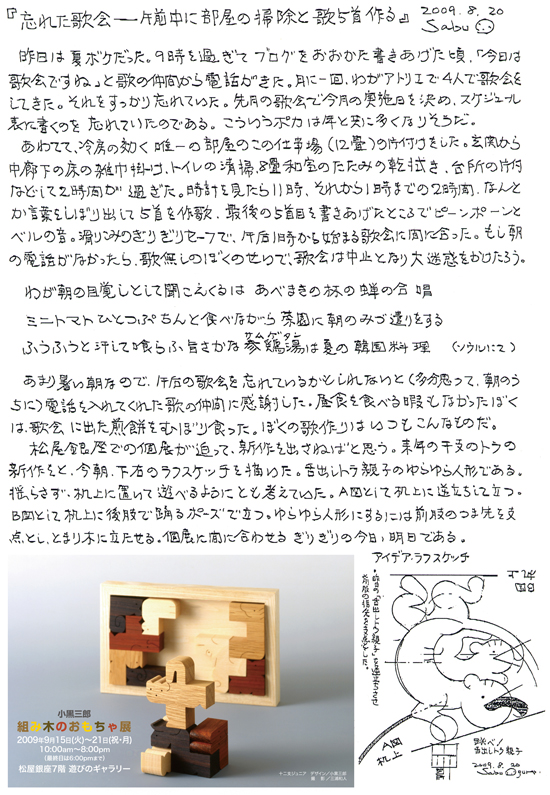 『忘れた歌会―午前中に部屋の掃除と歌5首作る』 2009.8.20
Sabu
昨日は夏ボケだった。9時を過ぎてブログをおおかた書きあげた頃、「今日は
歌会ですね」と歌の仲間から電話がきた。月に一回、わがアトリエで4人で歌会を
してきた。それをすっかり忘れていた。先月の歌会で今月の実施日を決め、スケジュール
表に書くのを忘れていたのである。こういうポカは年と共に多くなりそうだ。
あわてて、冷房の効く唯一の部屋のこの仕事場(12畳)の片付けをした。玄関から
中廊下の床の雑巾掛け、トイレの清掃、8畳和室のたたみの乾拭き、台所の片付
などして2時間が過ぎた。時計を見たら11時、それから1時までの2時間、なんと
か言葉をしぼり出して5首を作歌、最後の5首目を書きあげたところでピーンポーンと
ベルの音。滑り込みのぎりぎりセーフで、午后1時から始まる歌会に間に合った。もし朝
の電話がなかったら、歌無しのぼくのせいで、歌会は中止となり大迷惑をかけたろう。
わが朝の目覚しとして聞こえくるは あべまきの林の蝉の合唱
ミニトマトひとつぶちんと食べながら菜園に朝のみづ遣りをする
ふうふうと汗して喰らふ旨さかな参鶏湯は夏の韓国料理 (ソウルにて)
サムゲタン
あまり暑い朝なので、午后の歌会を忘れているかもしれないと(多分思って、朝のう
ちに)電話を入れてくれた歌の仲間に感謝した。昼食を食べる暇もなかったぼく
は、歌会に出た煎餅をむさぼり食った。ぼくの歌作りはいつもこんなものだ。
松屋銀座での個展が迫って、新作を出さねばと思う。来年の干支のトラの
新作をと、今朝、下右のラフスケッチを描いた。舌出しトラ親子のゆらゆら人形である。
揺らさず、机上に置いて遊べるようにとも考えていた。A図として机上に逆立ちして立つ。
B図として机上に後肢で踊るポーズで立つ。ゆらゆら人形にするには前肢のつま先を支
点とし、とまり木に立たせる。個展に間に合わせるぎりぎりの今日、明日である。
アイデア・ラフスケッチ
小黒三郎
組み木のおもちゃ展
2009年9月15日(火)〜21日(祝・月)
10:00am〜8:00pm
(最終日は6:00pmまで)
松屋銀座7階 遊びのギャラリー
十二支ジュニア デザイン/小黒三郎
A図
机上
B図
机上
舌出しトラ親子
2009.8.20
Sabu Oguro